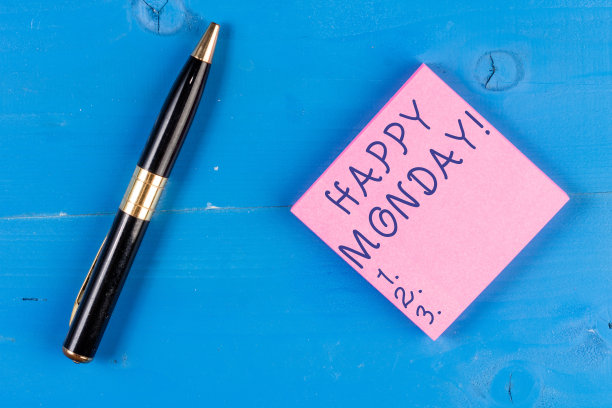 HAPPY
MONDAY!
1.
2.
3.